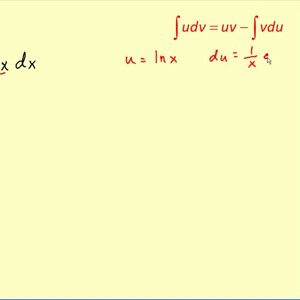 ∫udv = uv − ∫vdu
x dx u = ln x du = 1/x